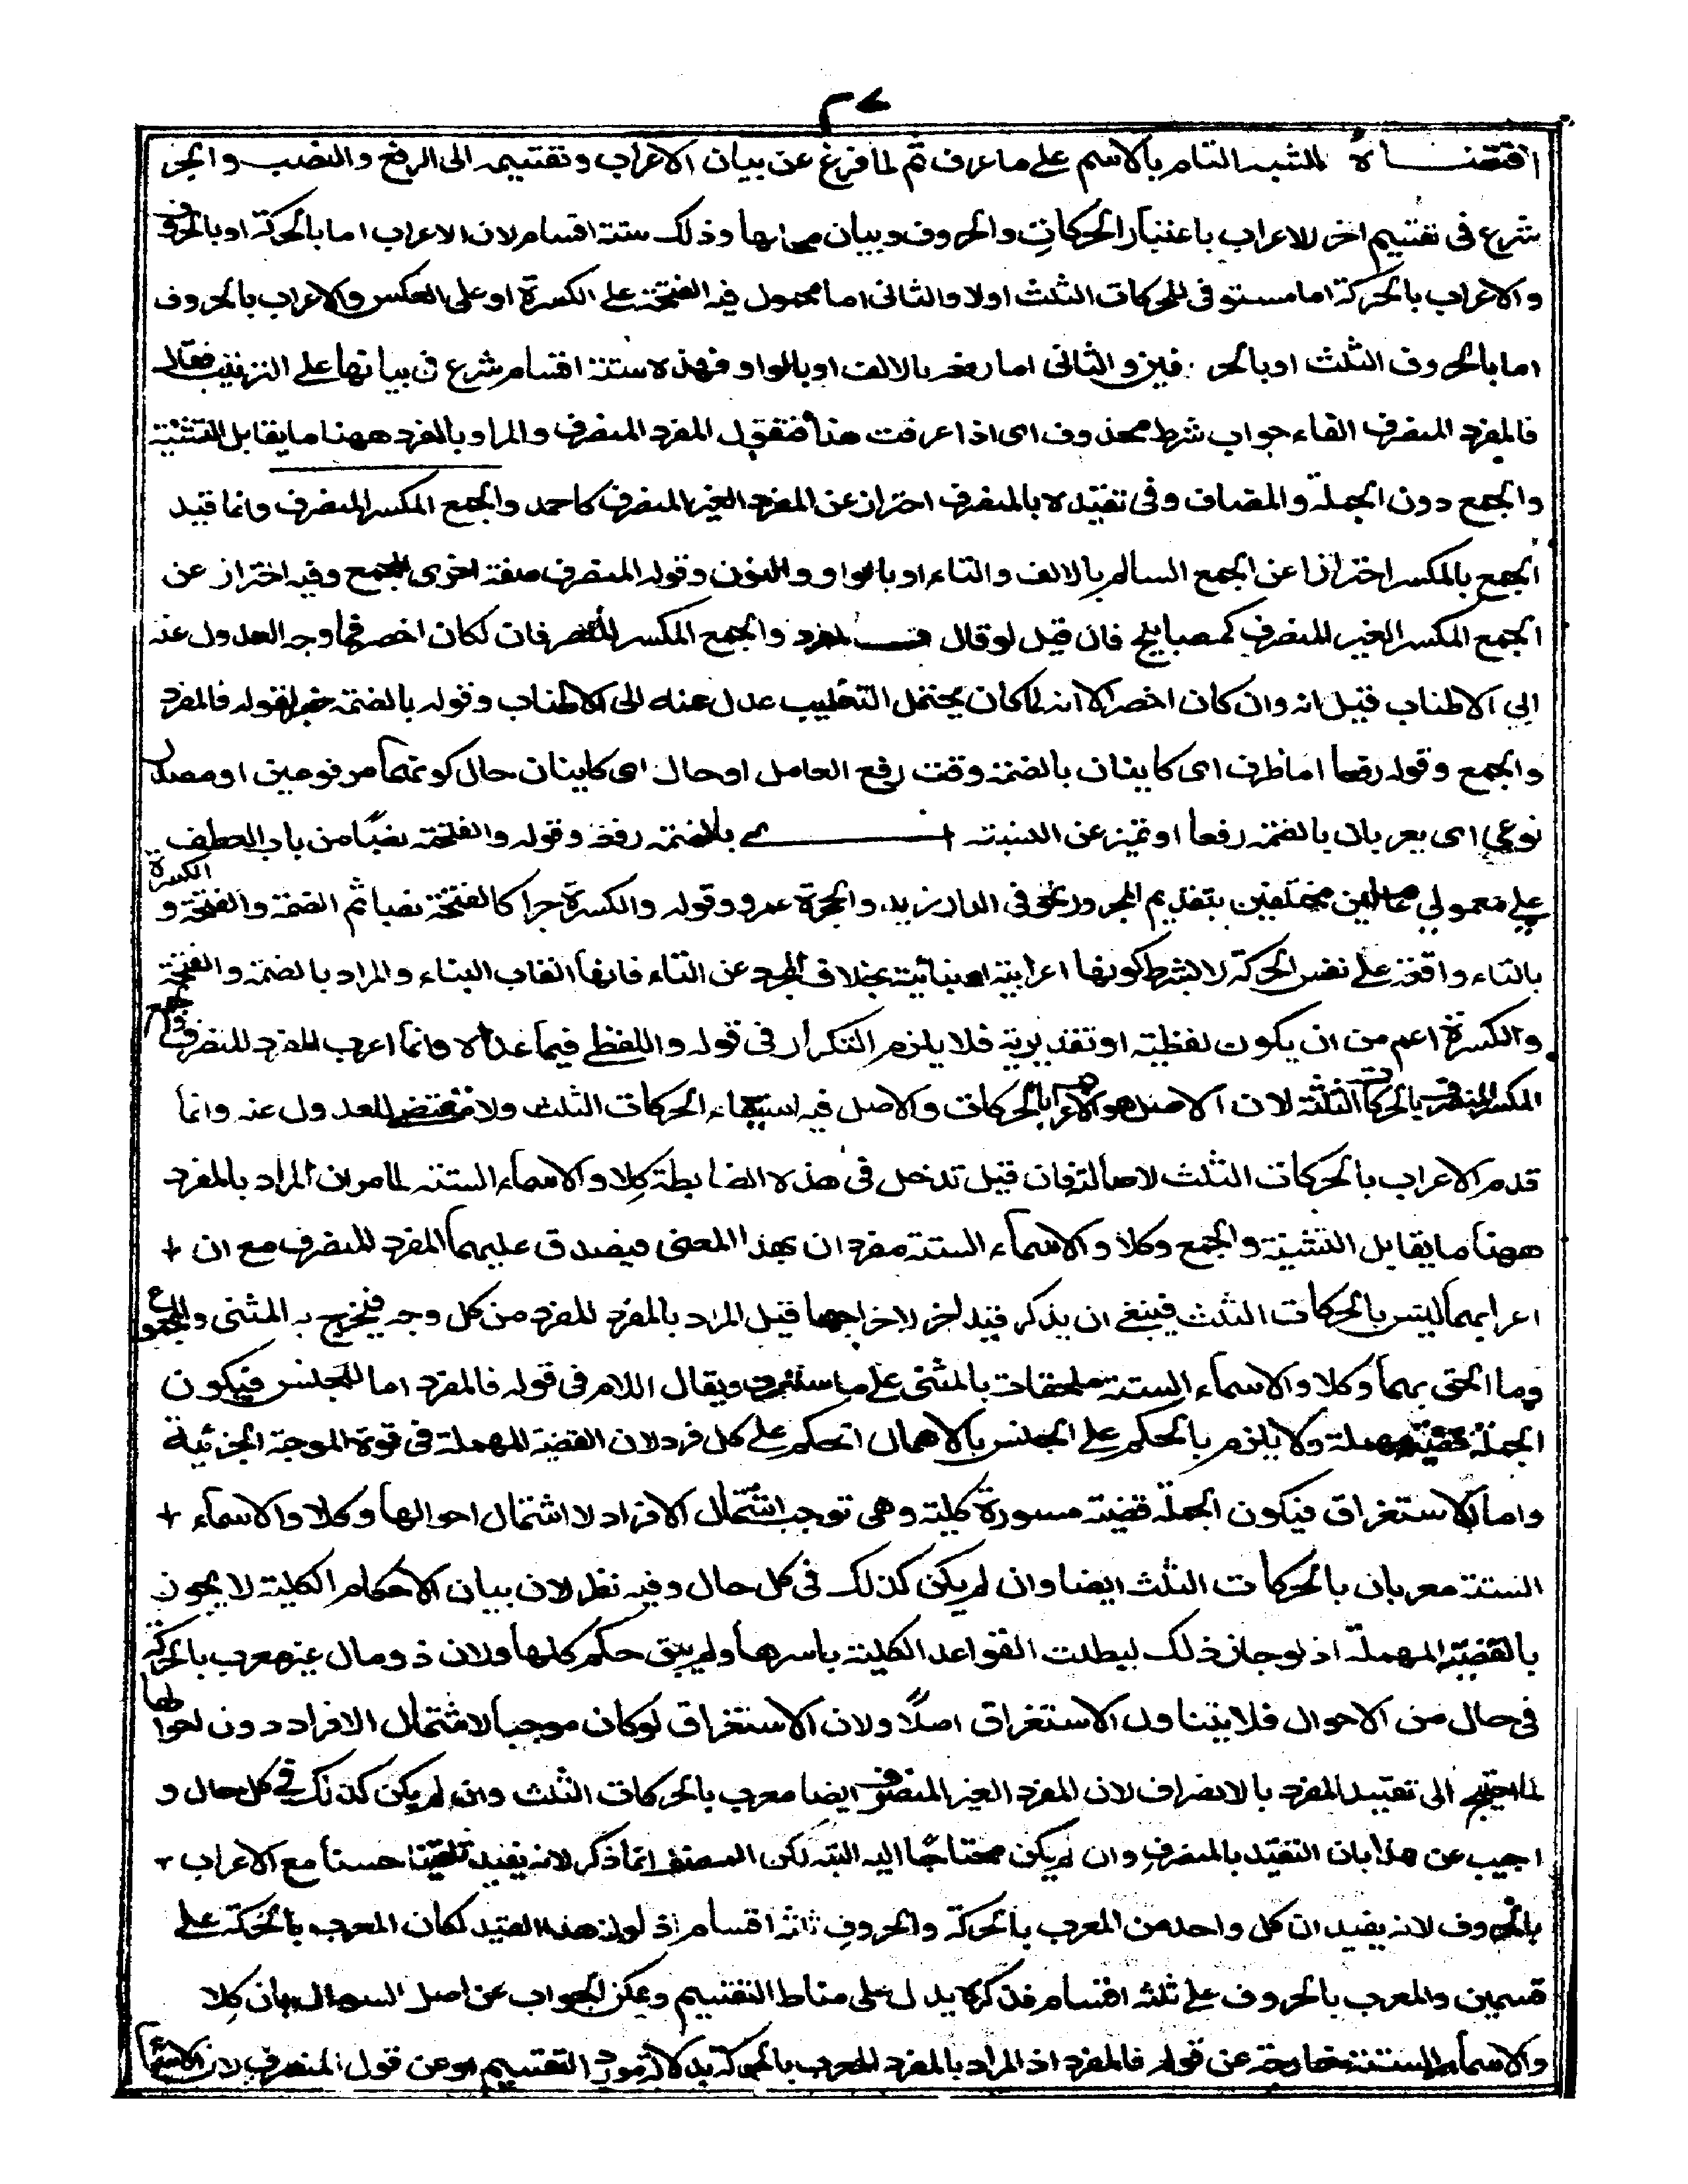 ٢٧
اقتضاه للشبه التام بالاسم على ما عرف ثم لما فرغ عن بيان الاعراب وتقسيمه الى الرفع والنصب والجر
شرع فى تقسيم اخر للاعراب باعتبار الحركات والحروف وبيان محالها وذلك ستة اقسام لان الاعراب اما بالحركة او بالحروف
والاعراب بالحركة اما مستوفى للحركات الثلث اولا والثانى اما محمول فيه الفتحة على الكسرة او على العكس والاعراب بالحروف
اما بالحروف الثلث او بالحرفين والثانى اما رفعه بالالف او بالواو فهذه ستة اقسام شرع فى بيانها على الترتيب فقال
فالمفرد المنصرف الفاء جواب شرط محذوف اى اذا عرفت هذا فنقول المفرد المنصرف والمراد بالمفرد ههنا ما يقابل التثنية
والجمع دون الجملة والمضاف وفى تقييده بالمنصرف احتراز عن المفرد الغير المنصرف كاحمد والجمع المكسر المنصرف وانما قيد
الجمع بالمكسر احترازا عن الجمع السالم بالالف والتاء او بالواو والنون وقوله المنصرف صفة اخرى للجمع وفيه احتراز عن
الجمع المكسر الغير المنصرف كمصابيح فان قيل لو قال المفرد والجمع المكسر المنصرفان لكان اخصر فما وجه العدول عنه
الى الاطناب قيل انه وان كان اخصر الا انه لما كان يحتمل التغليب عدل عنه الى الاطناب وقوله بالضمة خبر لقوله فالمفرد
والجمع وقوله رفعا اما ظرف اى كاينان بالضمة وقت رفع العامل او حال اى كاينان حال كونهما مرفوعين او مصدر
نوعى اى يعربان بالضمة رفعا او تميز عن النسبة اے بالضمة رفعه وقوله والفتحة نصبًا من باب العطف
على معمولي عاملين مختلفين بتقديم المجرور نحو فى الدار زيد والحجرة عمرو وقوله والكسرة جرا كالفتحة نصبا ثم الضمة والفتحة و الكسرة
بالتاء واقعة على نفس الحركة لا بشرط كونها اعرابية او بنائية بخلاف المجرد عن التاء فانها القاب البناء والمراد بالضمة والفتحة
والكسرة اعم من ان يكون لفظية او تقديرية فلا يلزم التكرار فى قوله واللفظى فيما عداه وانما اعرب المفرد المنصرف والجمع
المكسر المنصرف بالحركات الثلثة لان الاصل هو الاعراب بالحركات والاصل فيه استيفاء الحركات الثلث ولا مقتضى للعدول عنه وانما
قدم الاعراب بالحركات الثلث لاصالته فان قيل تدخل فى هذه الضابطة كلا والاسماء الستة لما مر ان المراد بالمفرد
ههنا ما يقابل التثنية والجمع وكلا والاسماء الستة مفردان بهذا المعنى فيصدق عليهما المفرد المنصرف مع ان
اعرابهما ليس بالحركات الثلث فينبغى ان يذكر قيد اخر لاخراجهما قيل المراد بالمفرد المفرد من كل وجه فيخرج به المثنى والمجموع
وما الحق بهما وكلا والاسماء الستة ملحقات بالمثنى على ما ستعرف ويقال اللام فى قوله فالمفرد اما للجنس فيكون
الجملة قضية مهملة ولا يلزم بالحكم على الجنس بالاهمال الحكم على كل فرد لان القضية المهملة فى قوة الموجبة الجزئية
واما للاستغراق فيكون الجملة قضية مسورة كلية وهى توجب اشتمال الافراد لا اشتمال احوالها وكلا والاسماء
الستة معربان بالحركات الثلث ايضا وان لم يكن كذلك فى كل حال وفيه نظر لان بيان الاحكام الكلية لا يجوز
بالقضية المهملة اذ لو جاز ذلك لبطلت القواعد الكلية باسرها ولم يبق حكم كلها ولان ذو مال غير معرب بالحركة
فى حال من الاحوال فلا يتناوله الاستغراق اصلًا ولان الاستغراق لو كان موجبا لاشتمال الافراد دون احوالها
لما احتيج الى تقييد المفرد بالانصراف لان المفرد الغير المنصرف ايضا معرب بالحركات الثلث وان لم يكن كذلك فى كل حال و
اجيب عن هذا بان التقييد بالمنصرف وان لم يكن محتاجًا اليه البتة لكن المصنف انما ذكر لانه يفيد تلفيقا حسنا مع الاعراب
بالحروف لانه يفيد ان كل واحد من المعرب بالحركة والحروف ثلثة اقسام اذ لولا هذا القيد لكان المعرب بالحركة على
قسمين والمعرب بالحروف على ثلثة اقسام فذكره يدل على مناط التقسيم ويمكن الجواب عن اصل السوال بان كلا
والاسماء الستة خارجة عن قوله فالمفرد اذ المراد بالمفرد المعرب بالحركة بدلالة مورد التقسيم او عن قوله المنصرف لان الاسماء